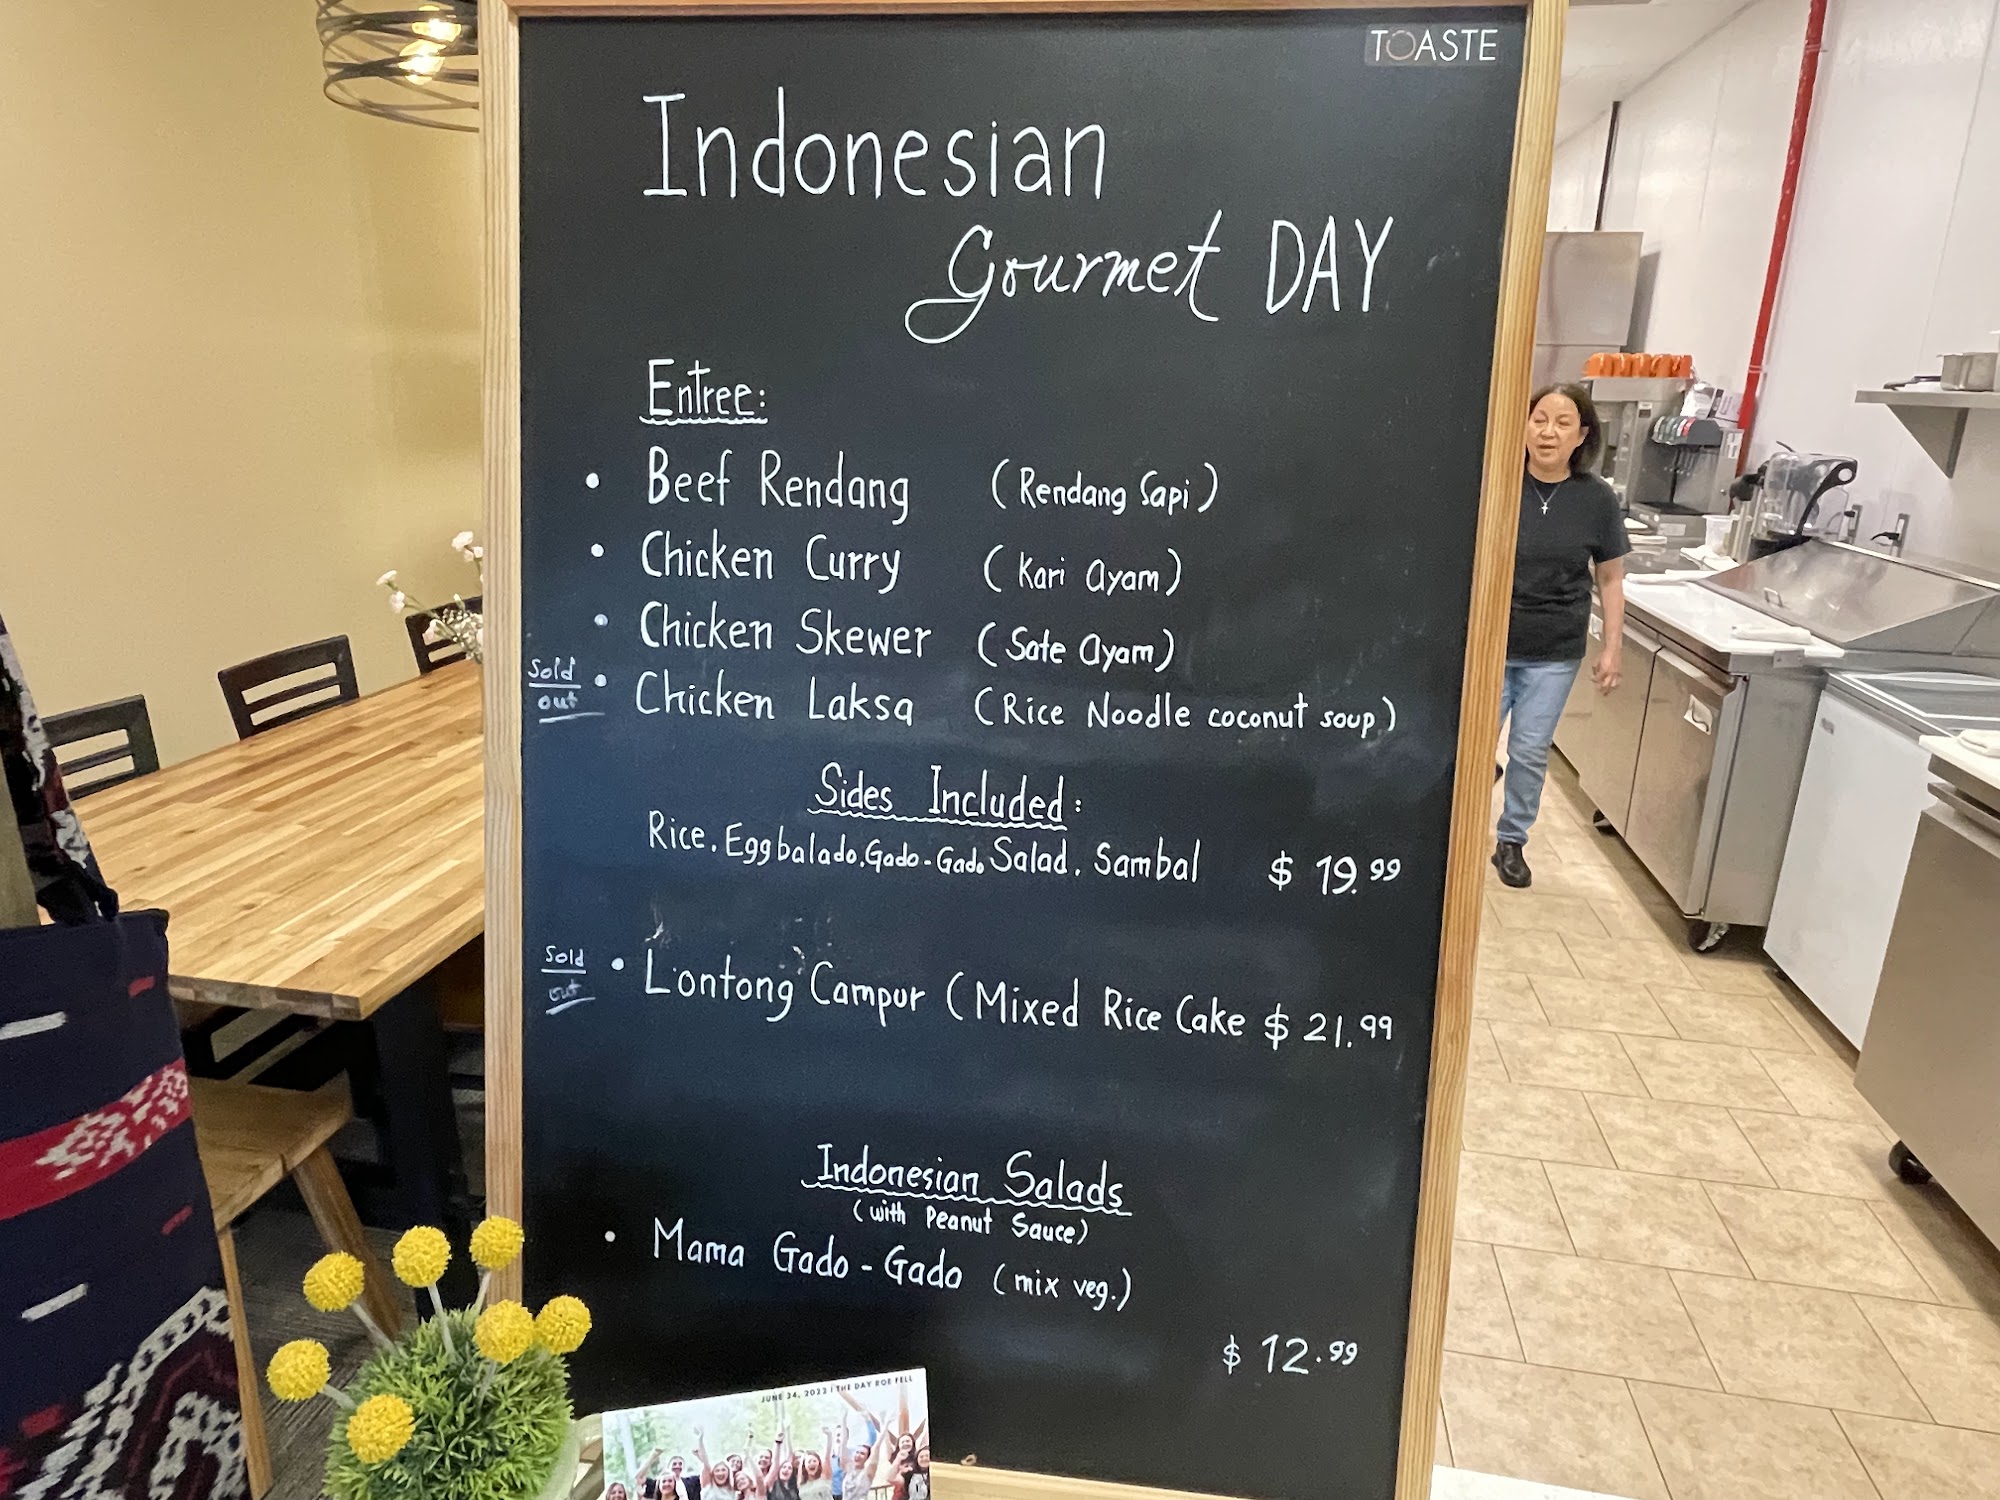 TOASTE
Indonesian
Gourmet DAY
Entree:
• Beef Rendang (Rendang Sapi)
• Chicken Curry (Kari Ayam)
• Chicken Skewer (Sate Ayam)
Sold out • Chicken Laksa (Rice Noodle coconut soup)
Sides Included:
Rice. Egg balado. Gado-Gado Salad. Sambal $ 19.99
Sold out • Lontong Campur (Mixed Rice Cake $ 21.99
Indonesian Salads
(with Peanut Sauce)
• Mama Gado-Gado (mix veg.)
$ 12.99
JUNE 24, 2022 | THE DAY ROE FELL